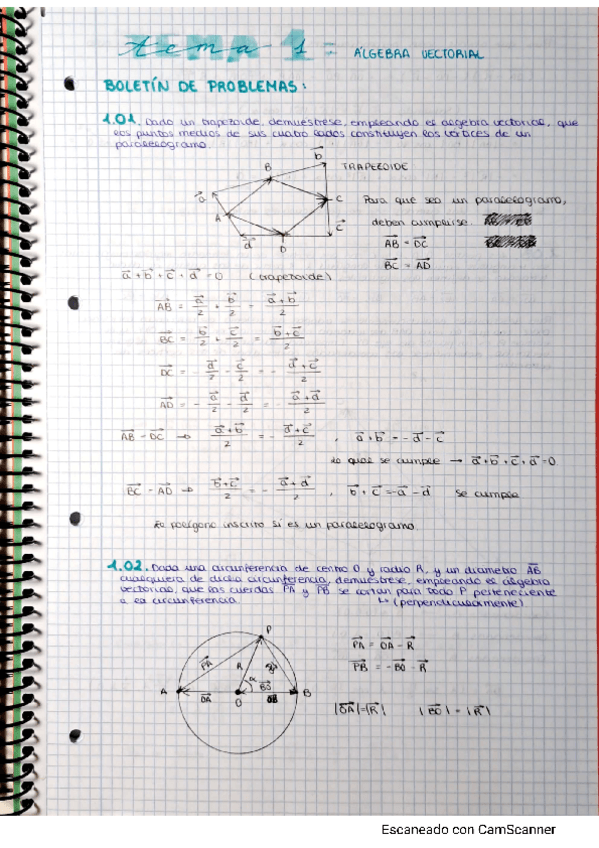 tema 1 = ÁLGEBRA VECTORIAL
BOLETÍN DE PROBLEMAS:
1.01. Dado un trapezoide, demuéstrese, empleando el álgebra vectorial, que
los puntos medios de sus cuatro lados constituyen los vértices de un
paralelogramo.
b
B
TRAPEZOIDE
a
A
C
c
d
D
Para que sea un paralelogramo,
deben cumplirse.
AB = DC
BC = AD
a + b + c + d = 0 (trapezoide)
AB = a/2 + b/2 = a+b/2
BC = b/2 + c/2 = b+c/2
DC = - d/2 - c/2 = - d+c/2
AD = - a/2 - d/2 = - a+d/2
AB = DC → a+b/2 = - d+c/2 , a+b = -d-c
lo qual se cumple → a+b+c+d=0
BC = AD → b+c/2 = - a+d/2 , b+c = -a-d se cumple
Lo polígono inscrito sí es un paralelogramo.
1.02. Dada una circunferencia de centro O y radio R, y un diámetro AB
cualquiera de dicha circunferencia, demuéstrese, empleando el álgebra
vectorial, que las cuerdas PA y PB se cortan para todo P perteneciente
a la circunferencia.
↳ (perpendicularmente)
P
PA
R
α
A
OA
O
BO
B
PA = OA - R
PB = -BO - R
|OA|=|R| |BO| = |R|
Escaneado con CamScanner